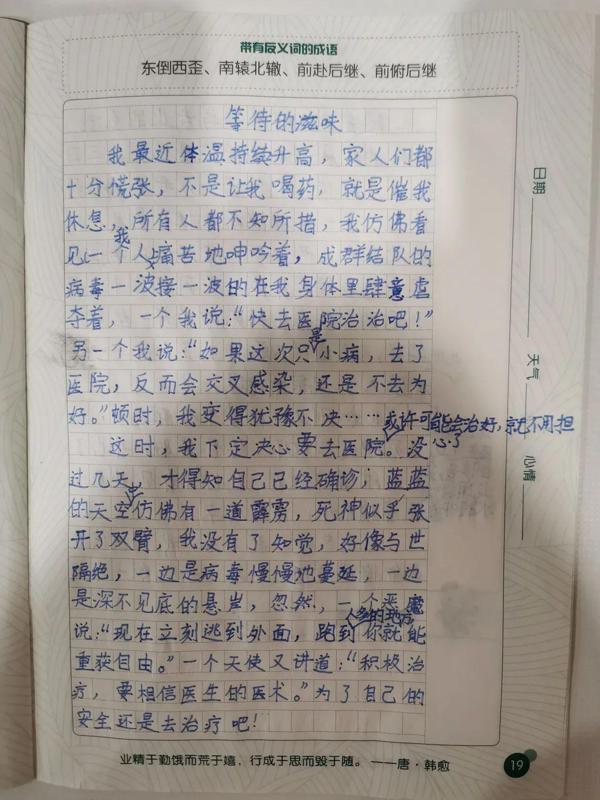 带有反义词的成语
东倒西歪、南辕北辙、前赴后继、前俯后继
等待的滋味
日期
我最近体温持续升高，家人们都
十分慌张，不是让我喝药，就是催我
休息，所有人都不知所措，我仿佛看
我
见一个人痛苦地呻吟着，成群结队的
病毒一波接一波的在我身体里肆意虐
夺着，一个我说：“快去医院治治吧！”
是
另一个我说：“如果这次只小病，去了
天气
医院，反而会交叉感染，还是不去为
好。”顿时，我变得犹豫不决……
或许可能会治好，就不用担
心了
这时，我下定决心要去医院。没
心情
过几天，才得知自己已经确诊，蓝蓝
中
的天空仿佛有一道霹雳，死神似乎张
开了双臂，我没有了知觉，好像与世
隔绝，一边是病毒慢慢地蔓延，一边
是深不见底的悬崖，忽然，一个恶魔
人多的地方
说：“现在立刻逃到外面，跑到你就能
重获自由。”一个天使又讲道：“积极治
疗，要相信医生的医术。”为了自己的
安全还是去治疗吧！
业精于勤饿而荒于嬉，行成于思而毁于随。——唐·韩愈
19